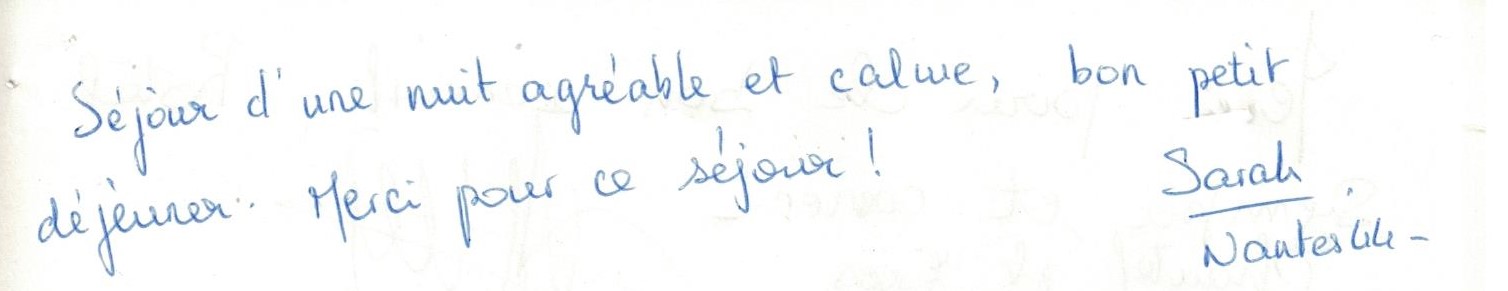 Séjour d'une nuit agréable et calme, bon petit
déjeuner. Merci pour ce séjour !
Sarah.
Nantes 44 -